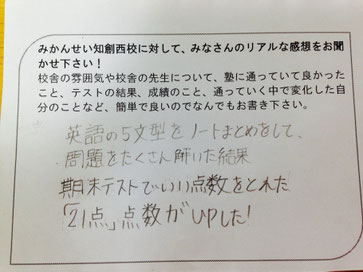 みかんせい知創西校に対して、みなさんのリアルな感想をお
聞かせ下さい！
校舎の雰囲気や校舎の先生について、塾に通っていて良かった
こと、テストの結果、成績のこと、通っていく中で変化した自
分のことなど、簡単で良いのでなんでもお書き下さい。
英語の5文型をノートまとめをして、
問題をたくさん解いた結果
期末テストでいい点数をとれた
「21点」点数がUPした!